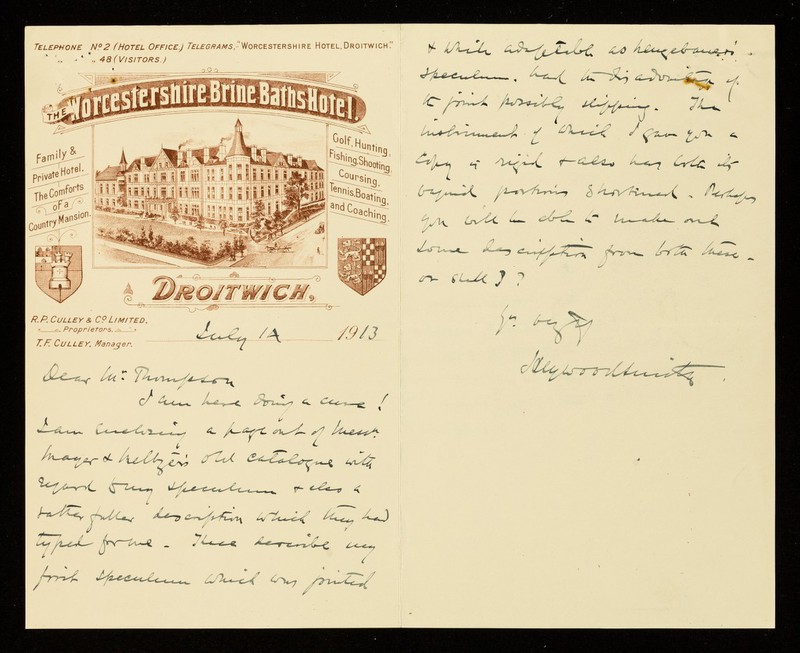 TELEPHONE Nº 2 (HOTEL OFFICE.) TELEGRAMS,-"WORCESTERSHIRE HOTEL, DROITWICH."
" .. " .. 48 (VISITORS.)
THE Worcestershire Brine Baths Hotel,
Family &
Private Hotel.
The Comforts
of a
Country Mansion.
Golf, Hunting,
Fishing, Shooting,
Coursing,
Tennis, Boating,
and Coaching.
DROITWICH,
R.P. CULLEY & Cº LIMITED,
Proprietors.
T.F. CULLEY, Manager.
July 14 1913
Dear Mr. Thompson
I am here doing a cure!
I am enclosing a page out of Messrs.
Mayer & Meltzer's old catalogue with
regard to my speculum & also a
rather fuller description which they had
typed for me - These describe my
first speculum which was jointed
& while adaptible as
speculum. had the disadvantage of
the joint possibly slipping. The
instrument of which I gave you a
copy is rigid & also has both its
vaginal portions shortened. Perhaps
you will be able to make out
some description from both these -
or shall I?
Yrs. very
Heywood Smith.